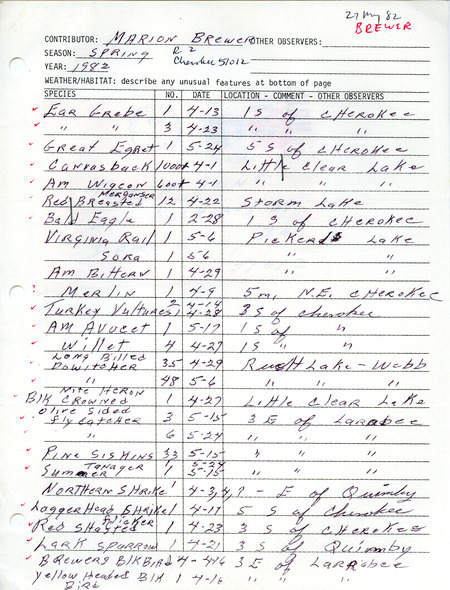 27 May 82
BREWER
CONTRIBUTOR: MARION BREWER OTHER OBSERVERS:
SEASON: SPRING R 2
YEAR: 1982 Cherokee 51012
WEATHER/HABITAT: describe any unusual features at bottom of page
SPECIES NO. DATE LOCATION - COMMENT - OTHER OBSERVERS
Ear Grebe 1 4-13 1 S of CHEROKEE
" " 3 4-23 " " "
Great Egret 1 5-24 5 S of CHEROKEE
Canvasback 1000+ 4-1 Little Clear Lake
Am Wigeon 600+ 4-1 " " "
Red Breasted Merganser 12 4-22 Storm Lake
Bald Eagle 1 2-28 1 S of CHEROKEE
Virginia Rail 1 5-6 Pickerels Lake
Sora 1 5 6 " "
Am Bittern 1 4-29 " "
Merlin 1 4-9 5 m. N.E. CHEROKEE
Turkey Vultures 2 4-14
1 4-28 3 S of Cherokee
AM Avocet 1 5-17 1 S of "
Willet 4 4-27 1 S " "
Long Billed
Dowitcher 35 4-29 Rush Lake - Webb
" 48 5-6 " " "
Nite Heron
Blk Crowned 1 4-27 Little Clear Lake
Olive Sided
Flycatcher 3 5-15 3 E of Larrabee
" 6 5-24 " " "
Pine Siskins 33 5-15 " " "
Summer Tanager 1 5-24
1 5-15 " " "
Northern Shrike 1 4-3,4,7 - E of Quimby
LoggerHead Shrike 1 4-17 5 S of Cherokee
Red Shafted Flicker 1 4-23 3 S of CHEROKEE
Lark Sparrow 1 4-21 3 S of Quimby
Brewers BlkBird 4 - 4-16 3 E of Larrabee
Yellow Headed Blk Bird 1 4-16 " " "